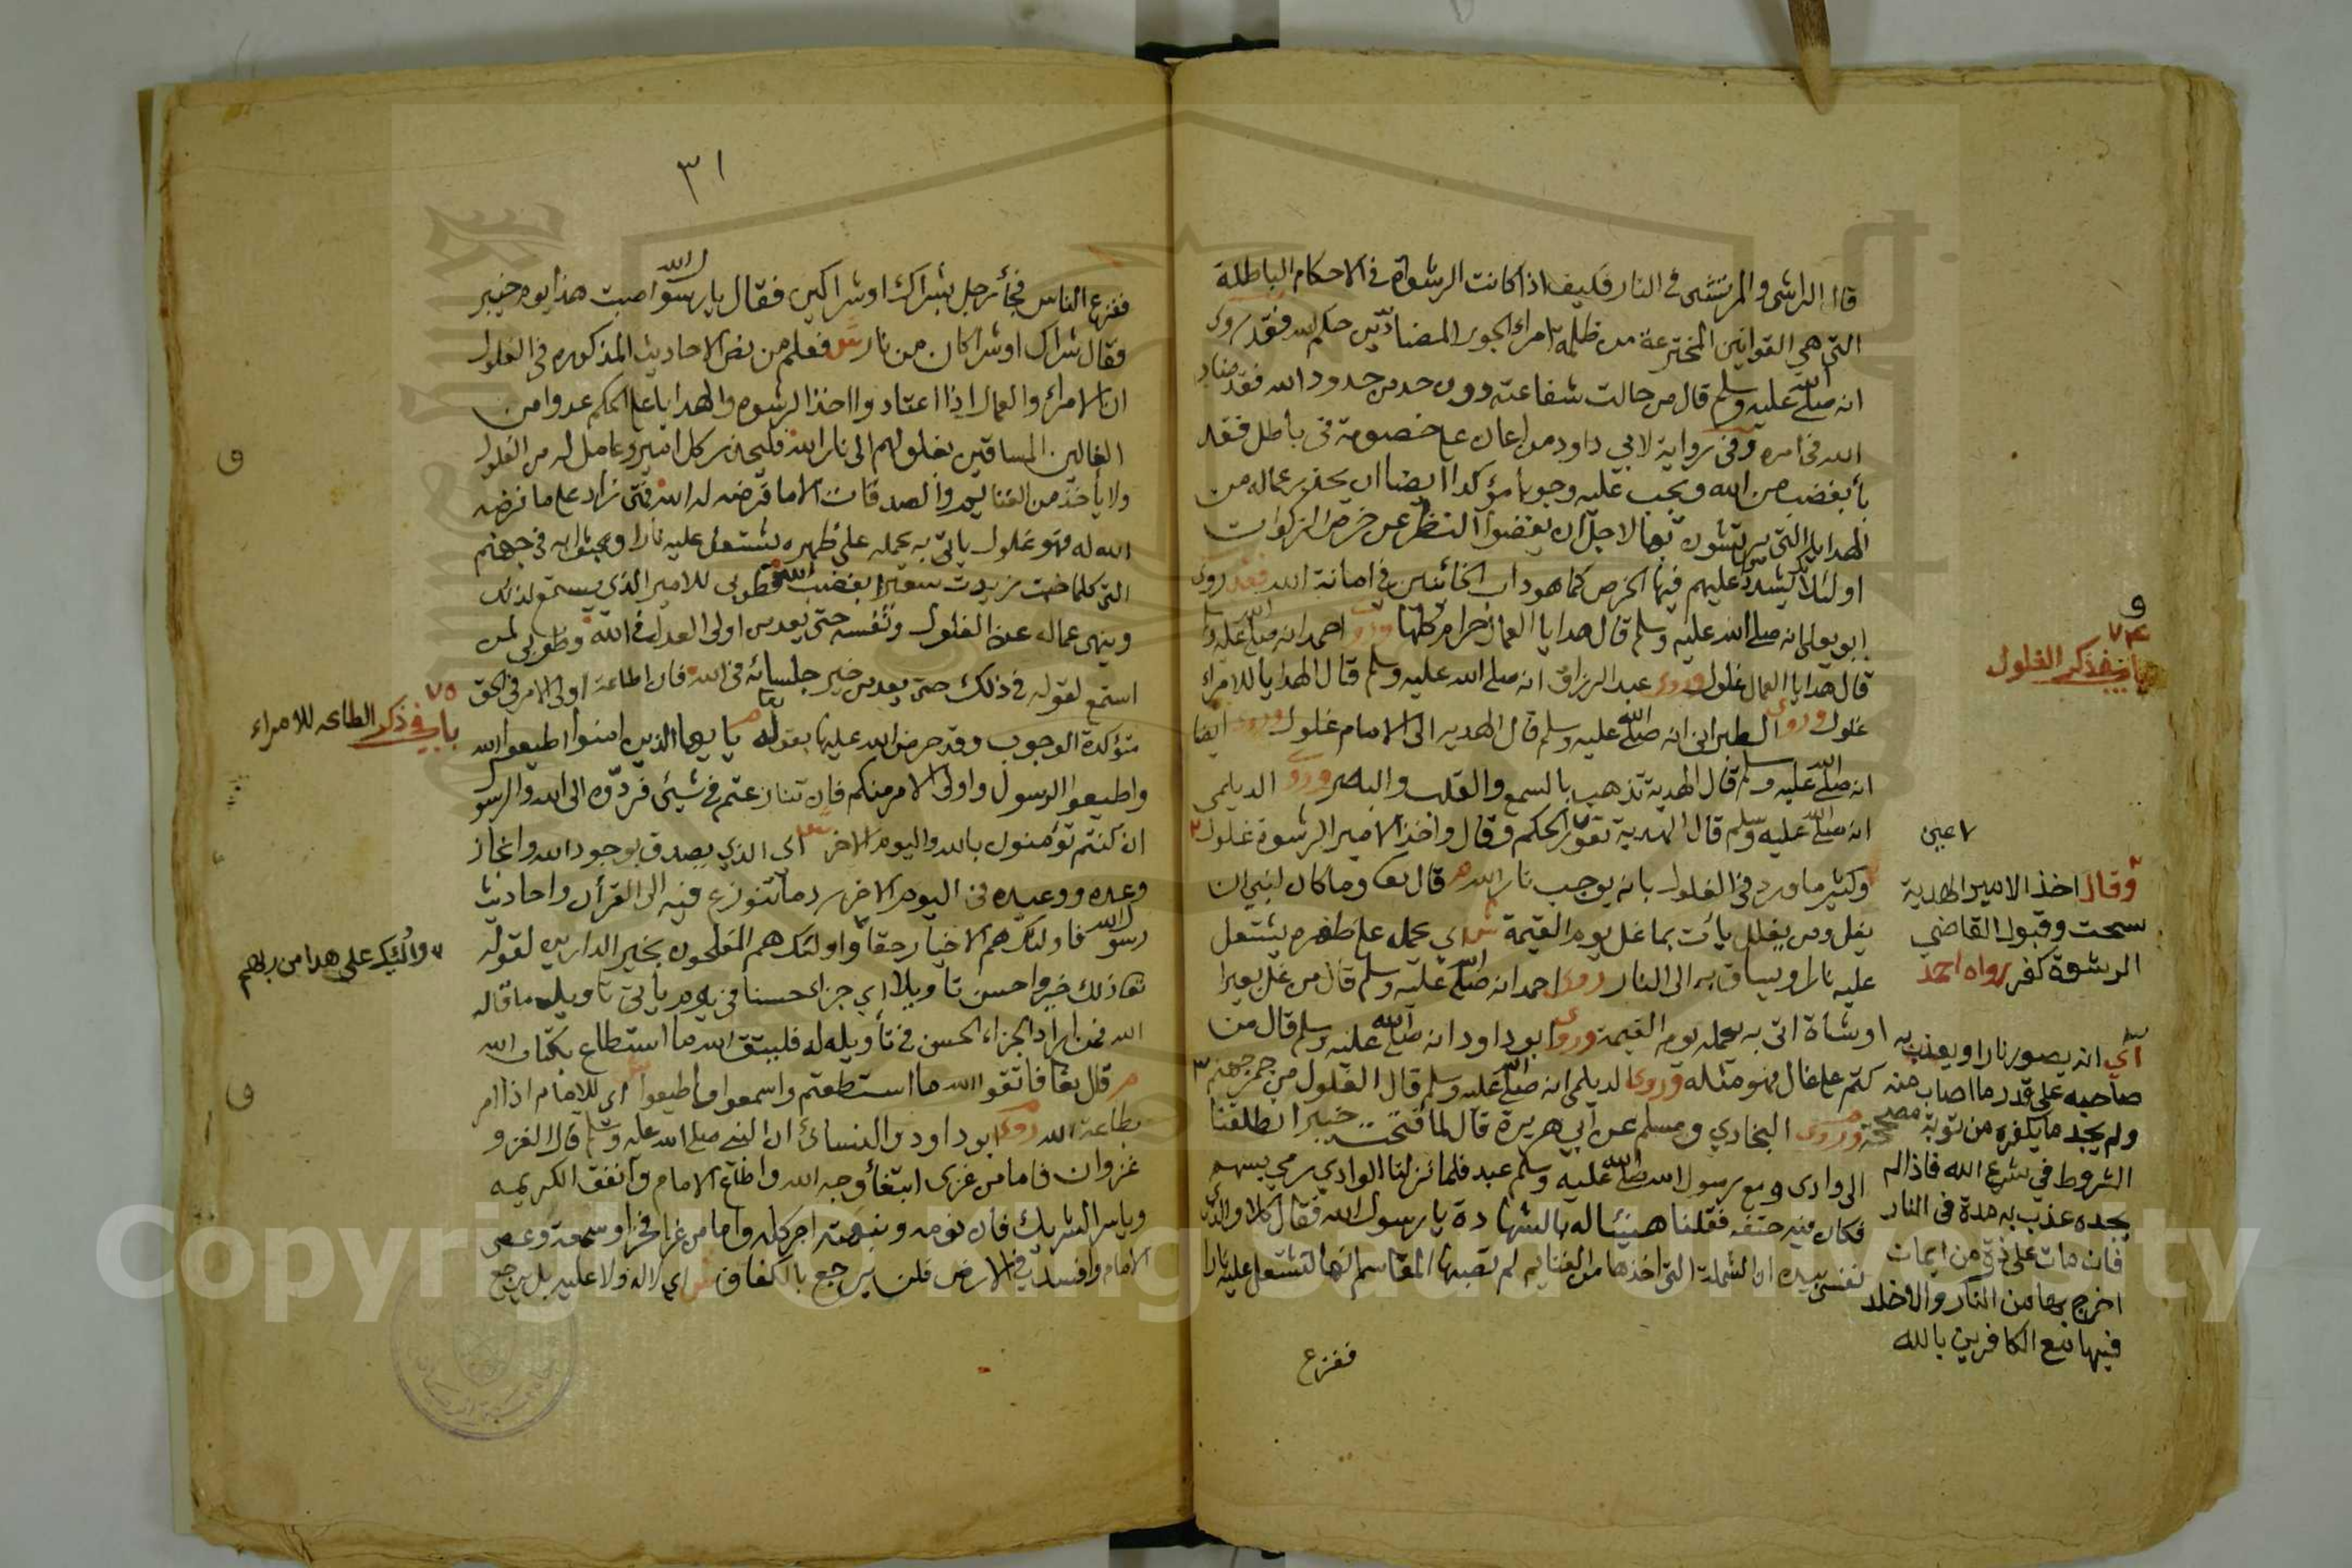 قال الراشي والمرتشي في النار فكيف اذا كانت الرشوة في الاحكام الباطلة
التي هي القوانين المخترعة من ظلمة امراء الجور المضادين حكم الله فقد روى
انه صلى الله عليه وسلم قال من حالت شفاعته دون حد من حدود الله فقد ضاد
الله في امره وفي رواية لابي داود من اعان على خصومة في باطل فقد
باء بغضب من الله ويجب عليه وجوبا مؤكدا ايضا ان يحذر عماله من
الهدايا التي يرتشون بها لاجل ان يغضوا النظر عن خرص الزكوات
او لئلا يشدد عليهم فيها الخرص كما هو داب الخائنين في امانة الله فقد روى
ابو يعلى انه صلى الله عليه وسلم قال هدايا العمال حرام كلها وروى احمد انه صلى الله عليه وسلم
قال هدايا العمال غلول وروى عبد الرزاق انه صلى الله عليه وسلم قال الهدايا للامراء
غلول وروى الطبراني انه صلى الله عليه وسلم قال الهديه الى الامام غلول وروى ايضا
انه صلى الله عليه وسلم قال الهدية تذهب بالسمع والقلب والبصر وروى الديلمي
انه صلى الله عليه وسلم قال الهدية تعور الحكم وقال واخذ الامير الرشوة غلول
وكثير ما ورد في الغلول بانه يوجب نار الله قال تعا وما كان لنبي ان
يغل ومن يغلل يأت بما غل يوم القيمة اي يحمله على ظهره يشتعل
عليه نارا ويساق به الى النار روى احمد انه صلى الله عليه وسلم قال من غل بعيرا
او شأة اتى به يحمله يوم القيمة وروى ابو داود انه صلى الله عليه وسلم قال من
كتم على غال فهو مثله وروى الديلمي انه صلى الله عليه وسلم قال الغلول من جمر جهنم
وروى البخاري ومسلم عن ابي هريرة قال لما فتحت خيبر انطلقنا
الى وادى ومع رسول الله صلى الله عليه وسلم عبد فلما نزلنا الوادي رمي بسهم
فكان فيه حتفه فقلنا هنيئا له بالشهادة يا رسول الله فقال كلا والذي
نفسي بيده ان الشملة التي اخذها من الغنايم لم تصبها المقاسم انها لتشتعل عليه نارا
ففزع
و
٧٤
باب في ذكر الغلول
٧ عين
وقال اخذ الامير الهدية
سحت وقبول القاضي
الرشوة كفر رواه احمد
اي انه يصور نارا ويعذب به
صاحبه على قدر ما اصاب منه
ولم يجد ما يكفره من توبة
الشروط في شرع الله فاذا لم
يجده عذب به مدة في النار
فان مات على ذرة من ايمان
اخرج بها من النار والا خلد
فيها مع الكافرين بالله
٣١
ففزع الناس فجاء رجل بشراك او شراكين فقال يا رسول الله اصبت هذا يوم خيبر
فقال شراك او شراكان من نار فعلم من نص الاحاديث المذكوره في الغلول
ان الامراء والعمال اذا اعتادوا اخذ الرشوه والهدايا على الحكم عدوا من
الغالين المساقين بغلولهم الى نار الله فليحذر كل امير وعامل له من الغلول
ولا يأخذ من الغنائيم والصدقات الا ما فرضه له الله فمتى زاد على ما فرضه
الله له فهو غلول ياتي به يحمله على ظهره يشتعل عليه نارا في جهنم
التي كلما خبت زيدت سعيرا بغضب الله فطوبى للامير الذي يستمع لذلك
وينهى عماله عن الغلول ونفسه حتى يعد من اولى العدل في الله وطوبى لمن
استمع لقوله في ذلك حتى يعد من خير جلسائه في الله فان اطاعة اولى الامر في الحق
مؤكدة الوجوب وقد حرض الله عليها بقوله تعا يا يها الذين امنوا اطيعوا الله
واطيعوا الرسول واولى الامر منكم فان تنازعتم في شيئ فردوه الى الله والرسول
ان كنتم تؤمنون بالله واليوم الاخر اي الذي يصدق بوجود الله وانجاز
وعده ووعيده في اليوم الاخر رد ما تنوزع فيه الى القرأن واحاديث
رسول الله فاولئك هم الاخيار حقا واولئك هم المفلحون بخير الدارين لقوله
تعا ذلك خير واحسن تأويلا اي جزاء حسنا في يوم يأتي تاويله ما قاله
الله فمن اراد الجزاء الحسن في تأويله له فليتق الله ما استطاع بكتاب الله
قال تعا فاتقوا الله ما استطعتم واسمعوا واطيعوا اى للامام اذا امر
بطاعة الله روى ابو داود والنسائ ان النبي صلى الله عليه وسلم قال الغزو
غزوان فاما من غزى ابتغاء وجه الله واطاع الامام وانفق الكريمه
وياسر الشريك فان نومه ونبهته اجر كله واما من غزا فخرا وسمعة وعصى
الامام وافسد في الارض فلن يرجع بالكفاف اي لا له ولا عليه بل يرجع
و
٧٥
باب في ذكر الطاعه للامراء
٧ واوليك على هدا من ربهم
و
Copyright © King Saud University